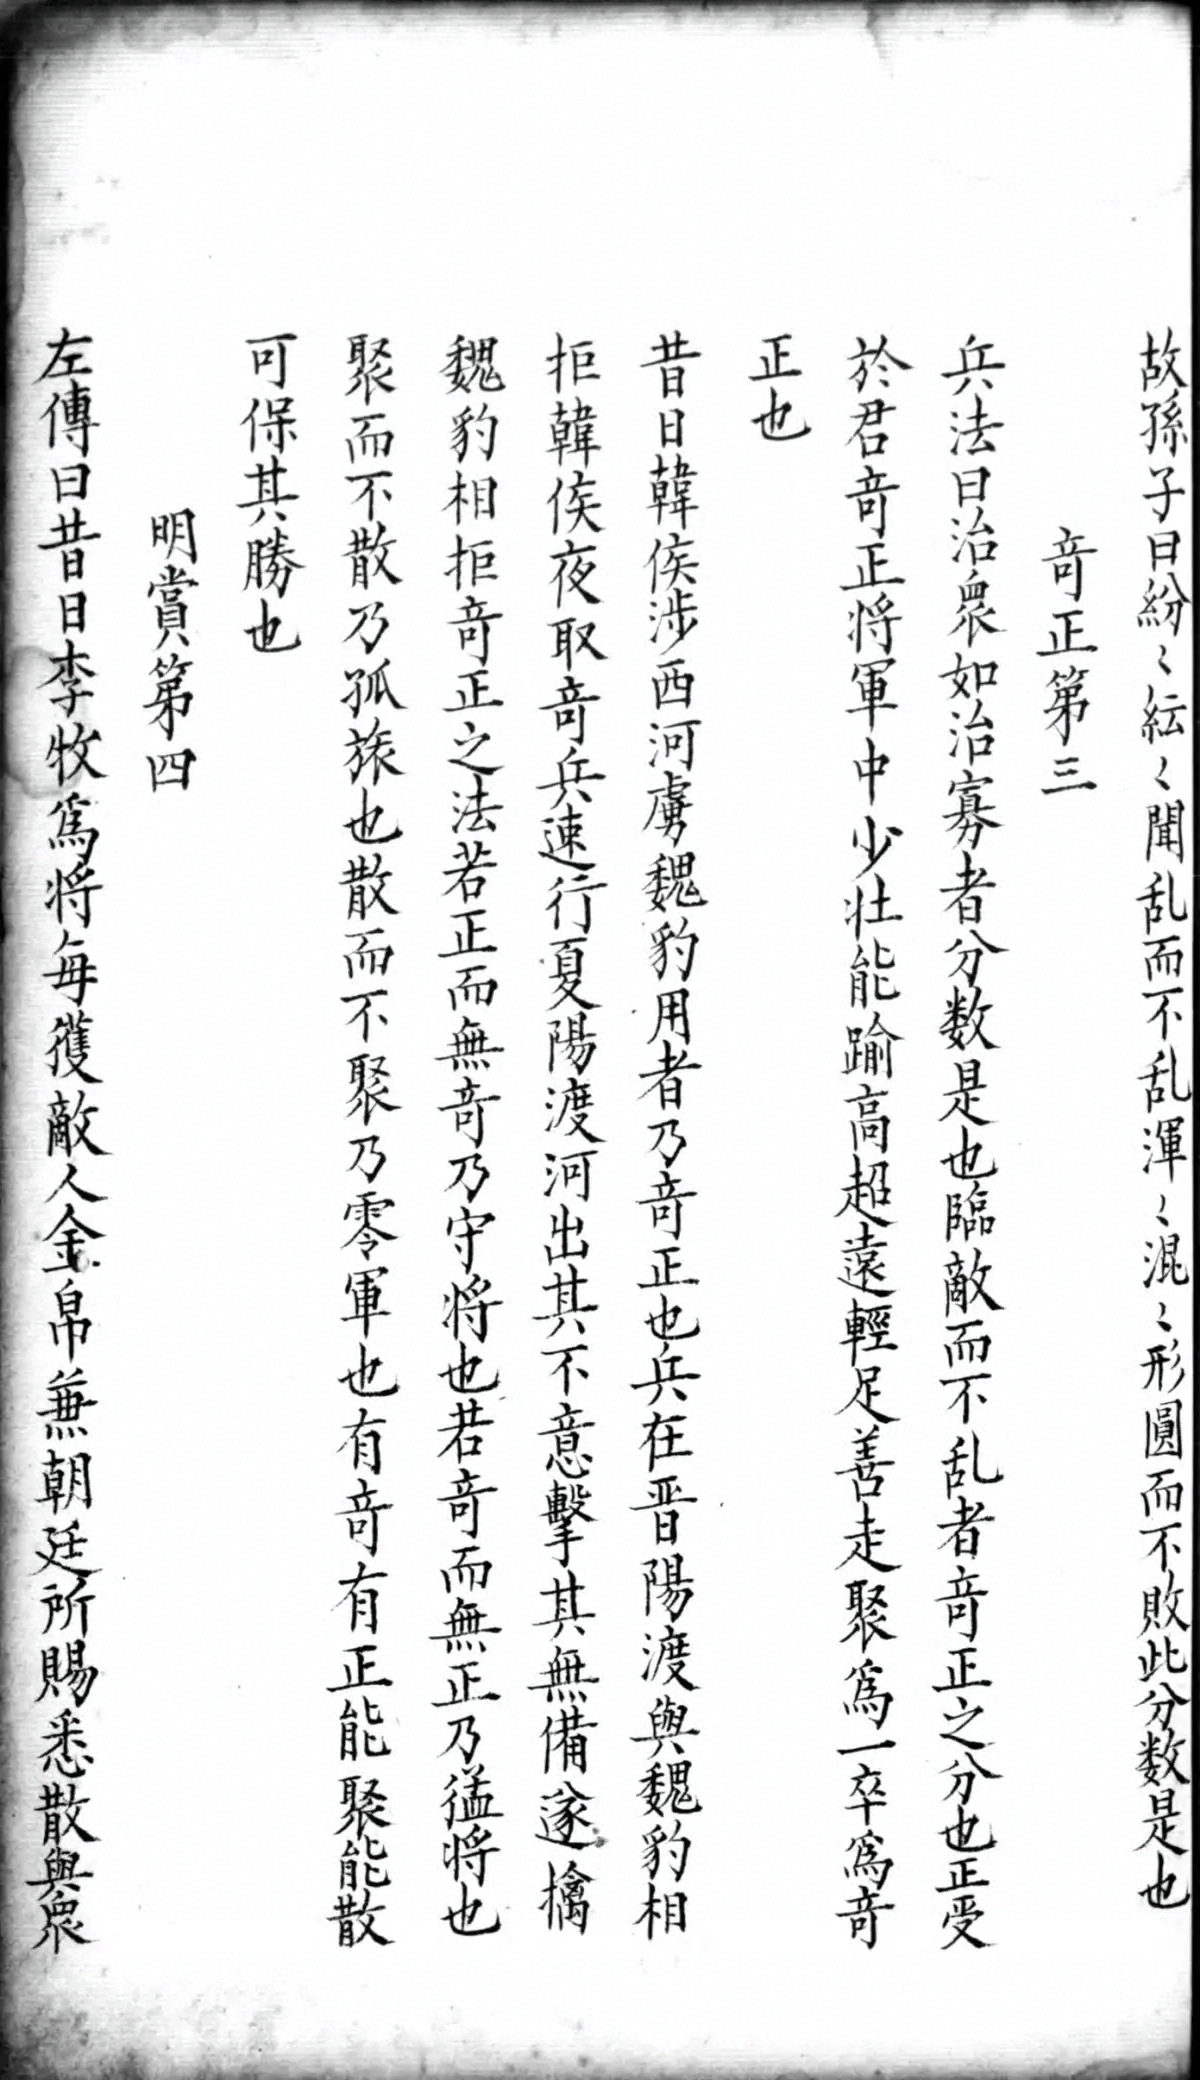 故孫子曰紛〻紜〻聞乱而不乱渾〻混〻形圓而不敗此分数是也
竒正第三
兵法曰治衆如治寡者分数是也臨敵而不乱者竒正之分也正受
於君竒正将軍中少壮能踰高超遠輕足善走聚爲一卒爲竒
正也
昔日韓侯渉西河虜魏豹用者乃竒正也兵在晋陽渡與魏豹相
拒韓侯夜取竒兵速行夏陽渡河出其不意擊其無備遂擒
魏豹相拒竒正之法若正而無竒乃守将也若竒而無正乃猛将也
聚而不散乃孤旅也散而不聚乃零軍也有竒有正能聚能散
可保其勝也
明賞第四
左傳曰昔日李牧爲将每獲敵人金帛兼朝廷所賜悉散與衆